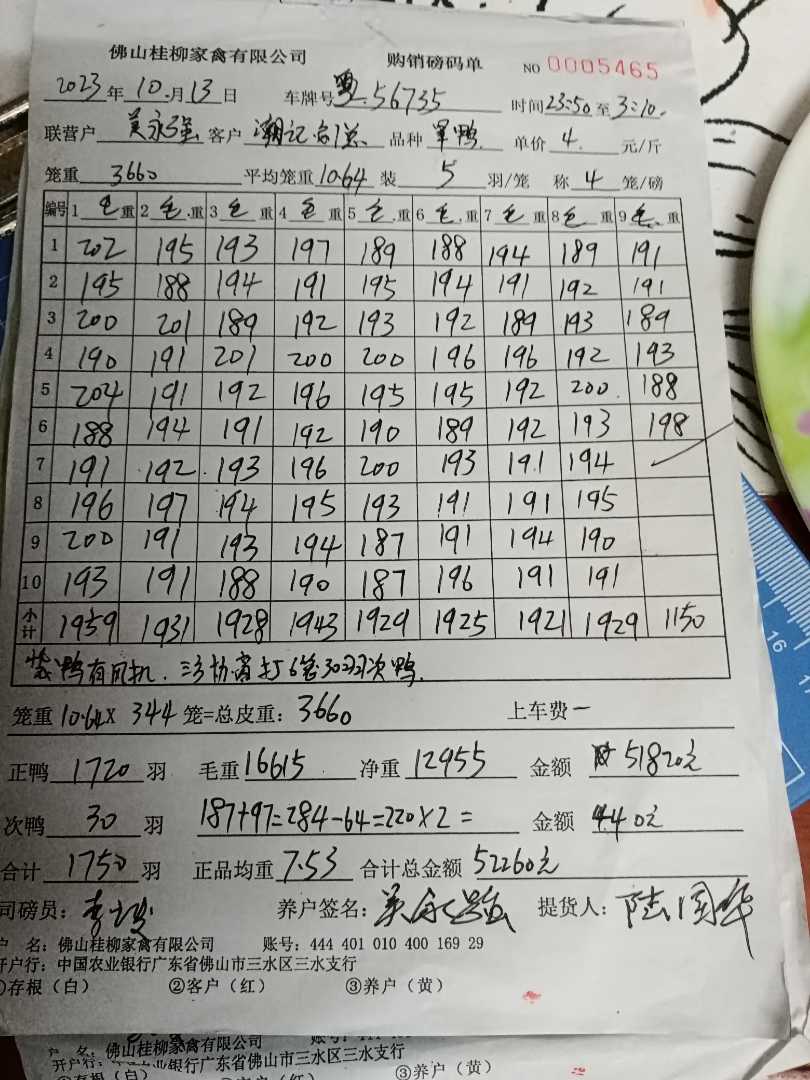 佛山桂柳家禽有限公司 购销磅码单 NO 0005465
2023年10月13日 车牌号粤.56735 时间23:50至3:10.
联营户 吴永强 客户 潮记 品种 单鸭 单价 4 元/斤
笼重 3660 平均笼重10.64 装 5 羽/笼 称 4 笼/磅
编号 1 毛 重 2 毛 重 3 毛 重 4 毛 重 5 毛 重 6 毛 重 7 毛 重 8 毛 重 9 毛 重
1 202 195 193 197 189 188 194 189 191
2 195 188 194 191 195 194 191 192 191
3 200 201 189 192 193 192 189 193 189
4 190 191 201 200 200 196 196 192 193
5 204 191 192 196 195 195 192 200 188
6 188 194 191 192 190 189 192 193 198
7 191 192 193 196 200 193 191 194
8 196 197 194 195 193 191 191 195
9 200 191 193 194 187 191 194 190
10 193 191 188 190 187 196 191 191
小计 1959 1931 1928 1943 1929 1925 1921 1929 1150
装鸭有风机. 30羽次鸭.
笼重 10.64 X 344 笼=总皮重: 3660 上车费 一
正鸭 1720 羽 毛重 16615 净重 12955 金额 51820元
次鸭 30 羽 187+97=284-64=220X2= 金额 440元
合计 1750 羽 正品均重 7.53 合计总金额 52260元
司磅员: 养户签名: 吴永强 提货人: 陆国华
户 名: 佛山桂柳家禽有限公司 账号: 444 401 010 400 169 29
开户行: 中国农业银行广东省佛山市三水区三水支行
①存根（白） ②客户（红） ③养户（黄）
户 名: 佛山桂柳家禽有限公司 账号:
开户行: 业银行广东省佛山市三水区三水支行
①存根（白） ②客户（红） ③养户（黄）